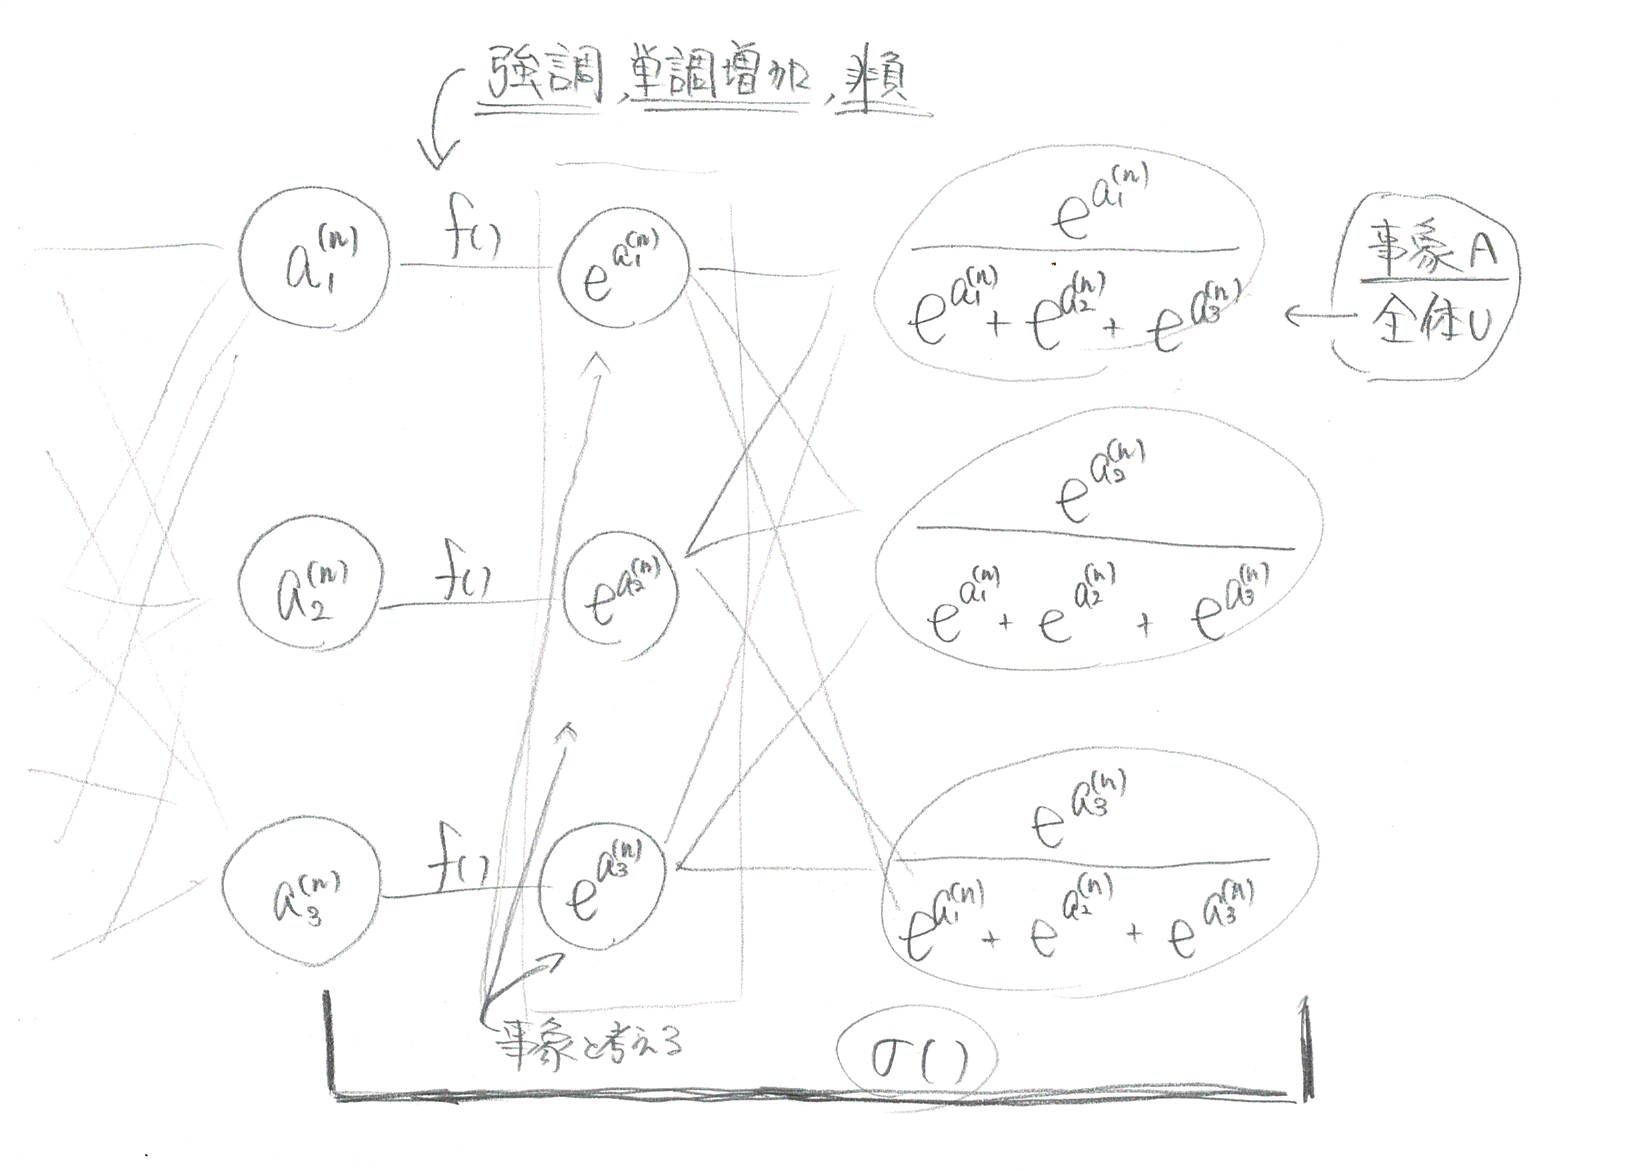 強調,単調増加,非負
a₁⁽ⁿ⁾ f() e^{a₁⁽ⁿ⁾}
e^{a₁⁽ⁿ⁾}
e^{a₁⁽ⁿ⁾} + e^{a₂⁽ⁿ⁾} + e^{a₃⁽ⁿ⁾}
事象A
全体U
a₂⁽ⁿ⁾ f() e^{a₂⁽ⁿ⁾}
e^{a₂⁽ⁿ⁾}
e^{a₁⁽ⁿ⁾} + e^{a₂⁽ⁿ⁾} + e^{a₃⁽ⁿ⁾}
a₃⁽ⁿ⁾ f() e^{a₃⁽ⁿ⁾}
e^{a₃⁽ⁿ⁾}
e^{a₁⁽ⁿ⁾} + e^{a₂⁽ⁿ⁾} + e^{a₃⁽ⁿ⁾}
事象と考える
σ()